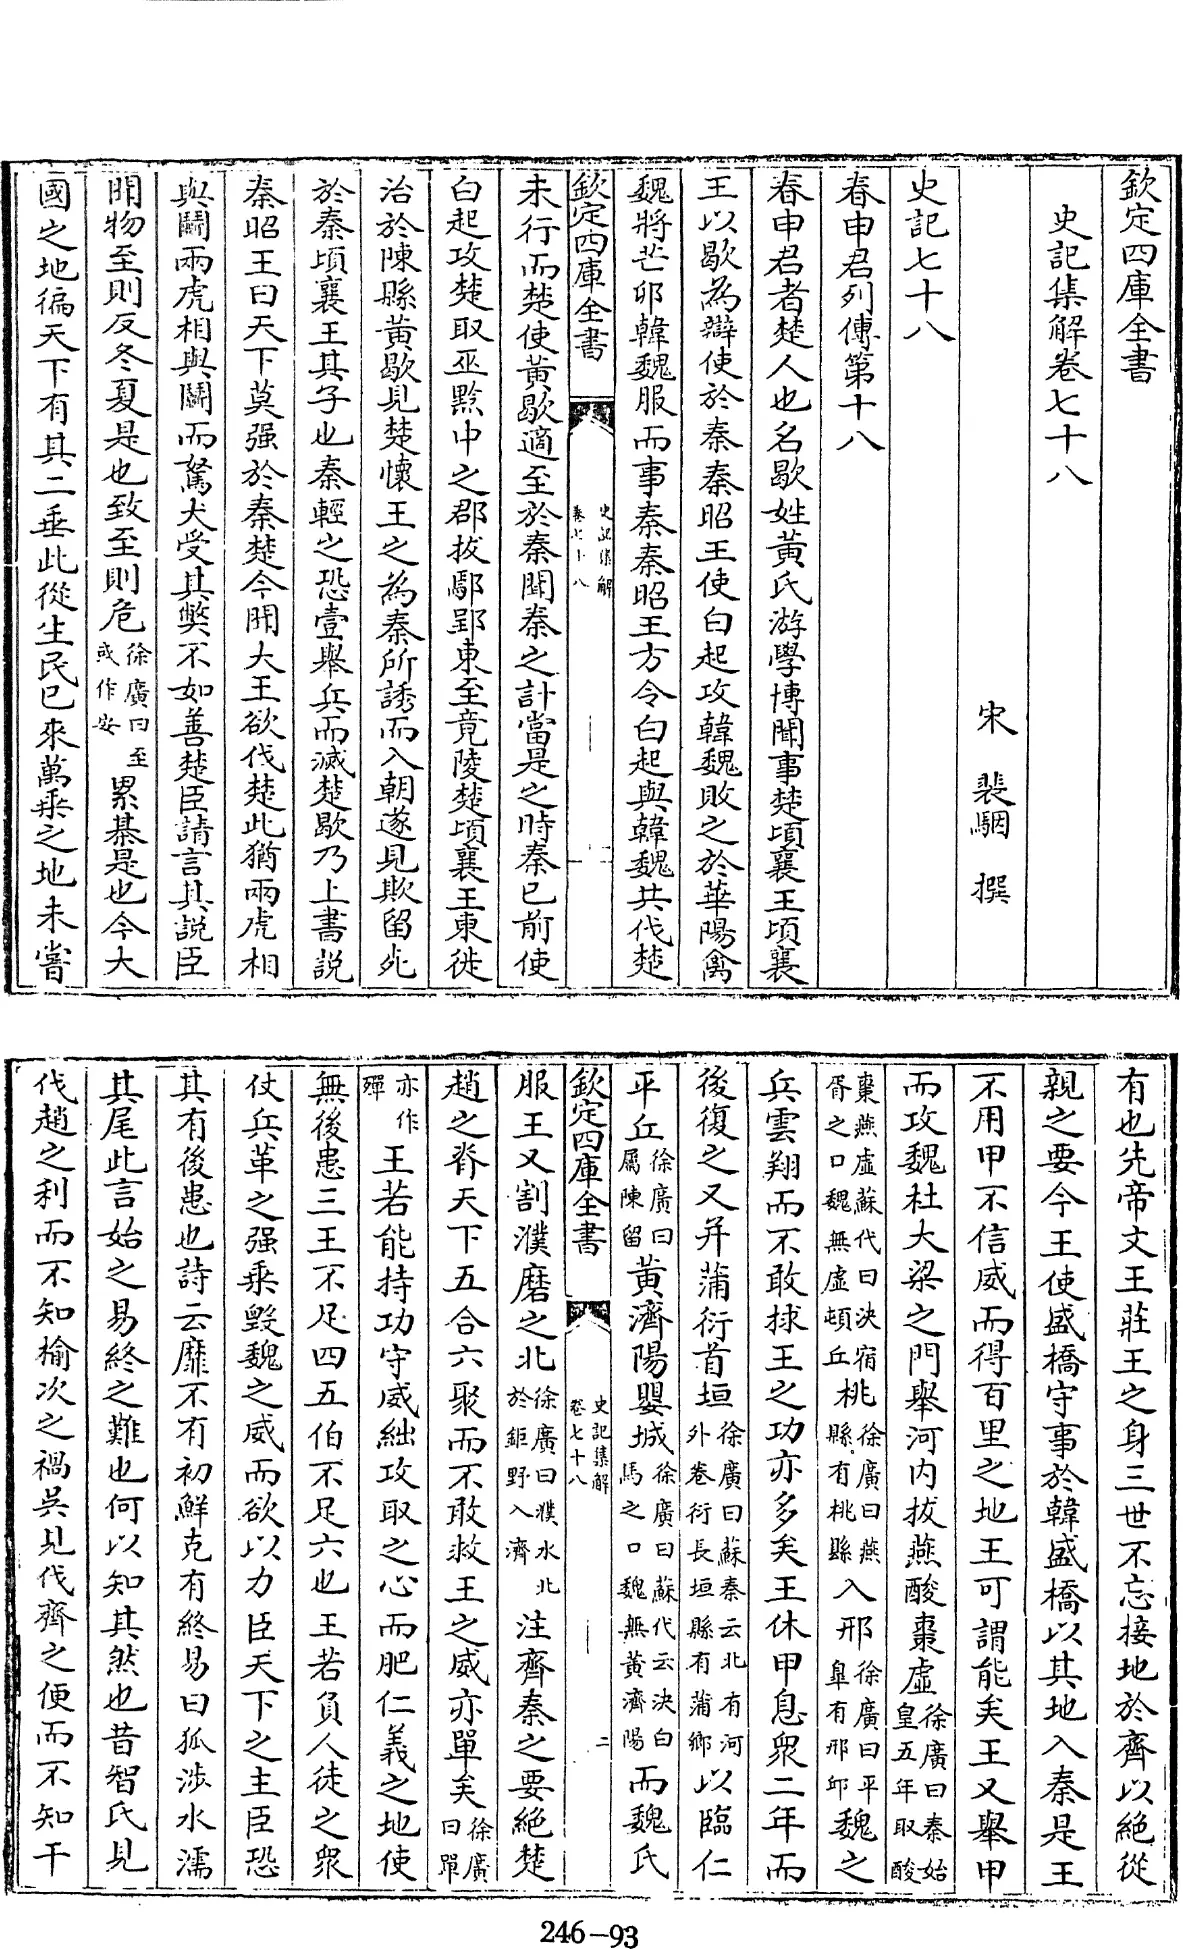 欽定四庫全書
史記集解卷七十八
宋 裴駰 撰
史記七十八
春申君列傳第十八
春申君者楚人也名歇姓黃氏游學博聞事楚頃襄王頃襄
王以歇為辯使於秦秦昭王使白起攻韓魏敗之於華陽禽
魏將芒卯韓魏服而事秦秦昭王方令白起與韓魏共伐楚
欽定四庫全書 史記集解 卷七十八 一
未行而楚使黃歇適至於秦聞秦之計當是之時秦已前使
白起攻楚取巫黔中之郡拔鄢郢東至竟陵楚頃襄王東徙
治於陳縣黃歇見楚懷王之為秦所誘而入朝遂見欺留死
於秦頃襄王其子也秦輕之恐壹舉兵而滅楚歇乃上書説
秦昭王曰天下莫强於秦楚今聞大王欲伐楚此猶兩虎相
與鬭兩虎相與鬭而駑犬受其獘不如善楚臣請言其說臣
聞物至則反冬夏是也致至則危徐廣曰至或作安累棊是也今大
國之地徧天下有其二垂此從生民已來萬乘之地未嘗
有也先帝文王莊王之身三世不忘接地於齊以絕從
親之要今王使盛橋守事於韓盛橋以其地入秦是王
不用甲不信威而得百里之地王可謂能矣王又舉甲
而攻魏杜大梁之門舉河内拔燕酸棗虛徐廣曰秦始皇五年取酸
棗燕虛蘇代曰決宿胥之口魏無虛頓丘桃徐廣曰燕縣有桃縣入邢徐廣曰平臯有邢邱魏之
兵雲翔而不敢捄王之功亦多矣王休甲息衆二年而
後復之又并蒲衍首垣徐廣曰蘇秦云北有河外卷衍長垣縣有蒲鄉以臨仁
平丘徐廣曰屬陳留黃濟陽嬰城徐廣曰蘇代云決白馬之口魏無黃濟陽而魏氏
欽定四庫全書 史記集解 卷七十八 二
服王又割濮磨之北徐廣曰濮水北於鉅野入濟注齊秦之要絕楚
趙之脊天下五合六聚而不敢救王之威亦單矣徐廣曰單
亦作殫王若能持功守威絀攻取之心而肥仁義之地使
無後患三王不足四五伯不足六也王若負人徒之衆
仗兵革之强乘毀魏之威而欲以力臣天下之主臣恐
其有後患也詩云靡不有初鮮克有終易曰狐渉水濡
其尾此言始之易終之難也何以知其然也昔智氏見
伐趙之利而不知榆次之禍吳見伐齊之便而不知干
246-93